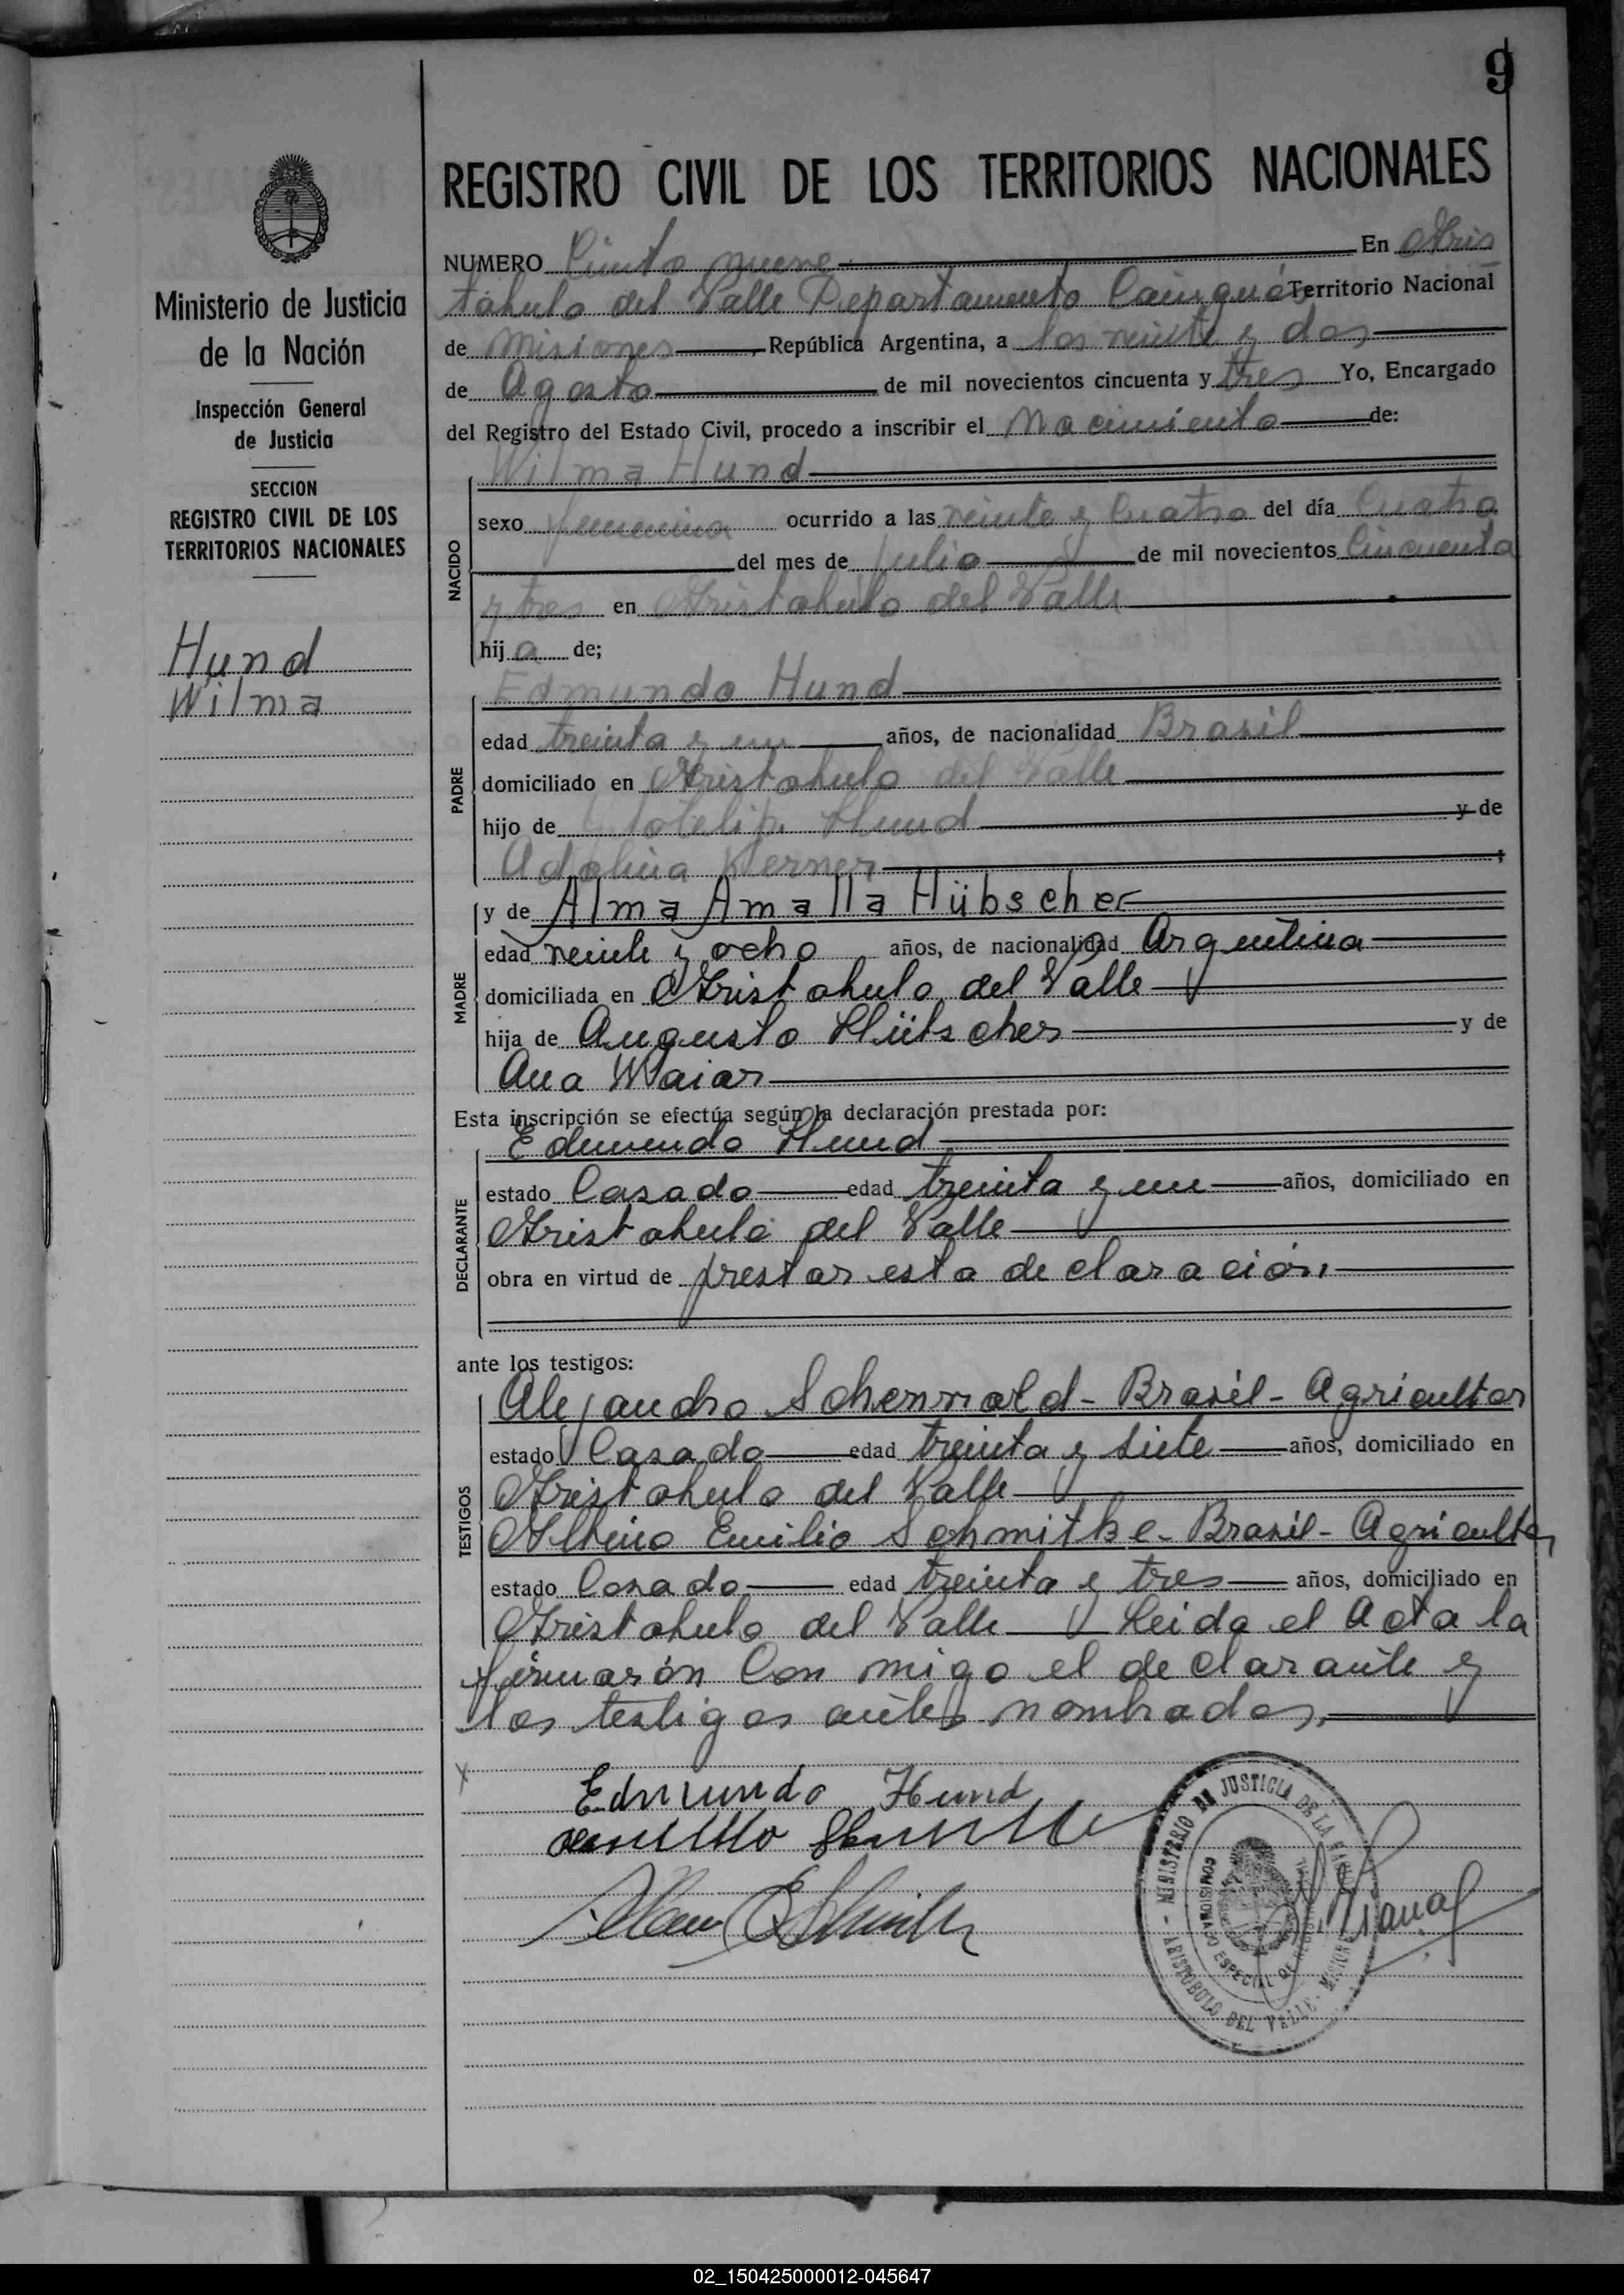 9
REGISTRO CIVIL DE LOS TERRITORIOS NACIONALES
Ministerio de Justicia
de la Nación
Inspección General
de Justicia
SECCION
REGISTRO CIVIL DE LOS
TERRITORIOS NACIONALES
Hund
Wilma
NUMERO Ciento nueve En Aris
tobulo del Valle Departamento Cainguás Territorio Nacional
de Misiones, República Argentina, a los veinte y dos
de Agosto de mil novecientos cincuenta y tres Yo, Encargado
del Registro del Estado Civil, procedo a inscribir el Nacimiento de:
NACIDO
Wilma Hund
sexo femenino ocurrido a las veinte y Cuatro del día Cuatro
del mes de Julio de mil novecientos Cincuenta
y tres en Aristobulo del Valle
hij a de;
PADRE
Edmundo Hund
edad treinta y un años, de nacionalidad Brasil
domiciliado en Aristobulo del Valle
hijo de Hund y de
Adolina Kerner
MADRE
y de Alma Amalla Hübscher
edad veinte y ocho años, de nacionalidad Argentina
domiciliada en Aristobulo del Valle
hija de Augusto Hübscher y de
Ana Maiar
Esta inscripción se efectúa según la declaración prestada por:
DECLARANTE
Edmundo Hund
estado Casado edad treinta y un años, domiciliado en
Aristobulo del Valle
obra en virtud de prestar esta declaración
ante los testigos:
TESTIGOS
Alejandro - Brasil - Agricultor
estado Casado edad treinta y siete años, domiciliado en
Aristobulo del Valle
Albino Emilio Schmitke - Brasil - Agricultor
estado Casado edad treinta y tres años, domiciliado en
Aristobulo del Valle Leida el Acta la
firmarón Con migo el declarante y
los testigos antes nombrados.
x
Edmundo Hund
MINISTERIO DE JUSTICIA DE LA
ARISTOBULO DEL VALLE - MISIONES
COMISIONADO ESPECIAL DE
02_150425000012-045647